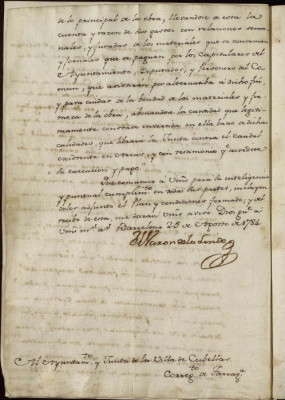 de lo principal de la obra, llevandose à esta la
cuenta y razon de sus gastos con relaciones sema-
nales, y jurados de los materiales que se consuman
y jornales que se paguen por los Capitulares del
Ayuntamiento, Diputados, y Personero del Co-
mun, que asistiran por alternativa à dicho fin,
y para cuidar de la bondad de los materiales y fir-
meza de la obra, abonando la cantidad que legiti-
mamente constare invertida en ella baxo de dichas
cuidados, que librara la Junta contra el Caudal
existente en Arcas, y con resamenia que acredite
la execucion y pago.
Lo que comunico à Vms para la inteligencia
y puntual cumplimto. en todas sus partes, incluyen-
doles adjunto el Plan y condiciones formado, y del
recibo de esta, me daran Vms aviso. Dios gue. à
Vms ms. as. Barcelona 25 de Agosto de 1784.
El Baron de la Linde
Al Ayuntamto. y Junta de la Villa de Cubellas
Correg.to de Tarrag.a